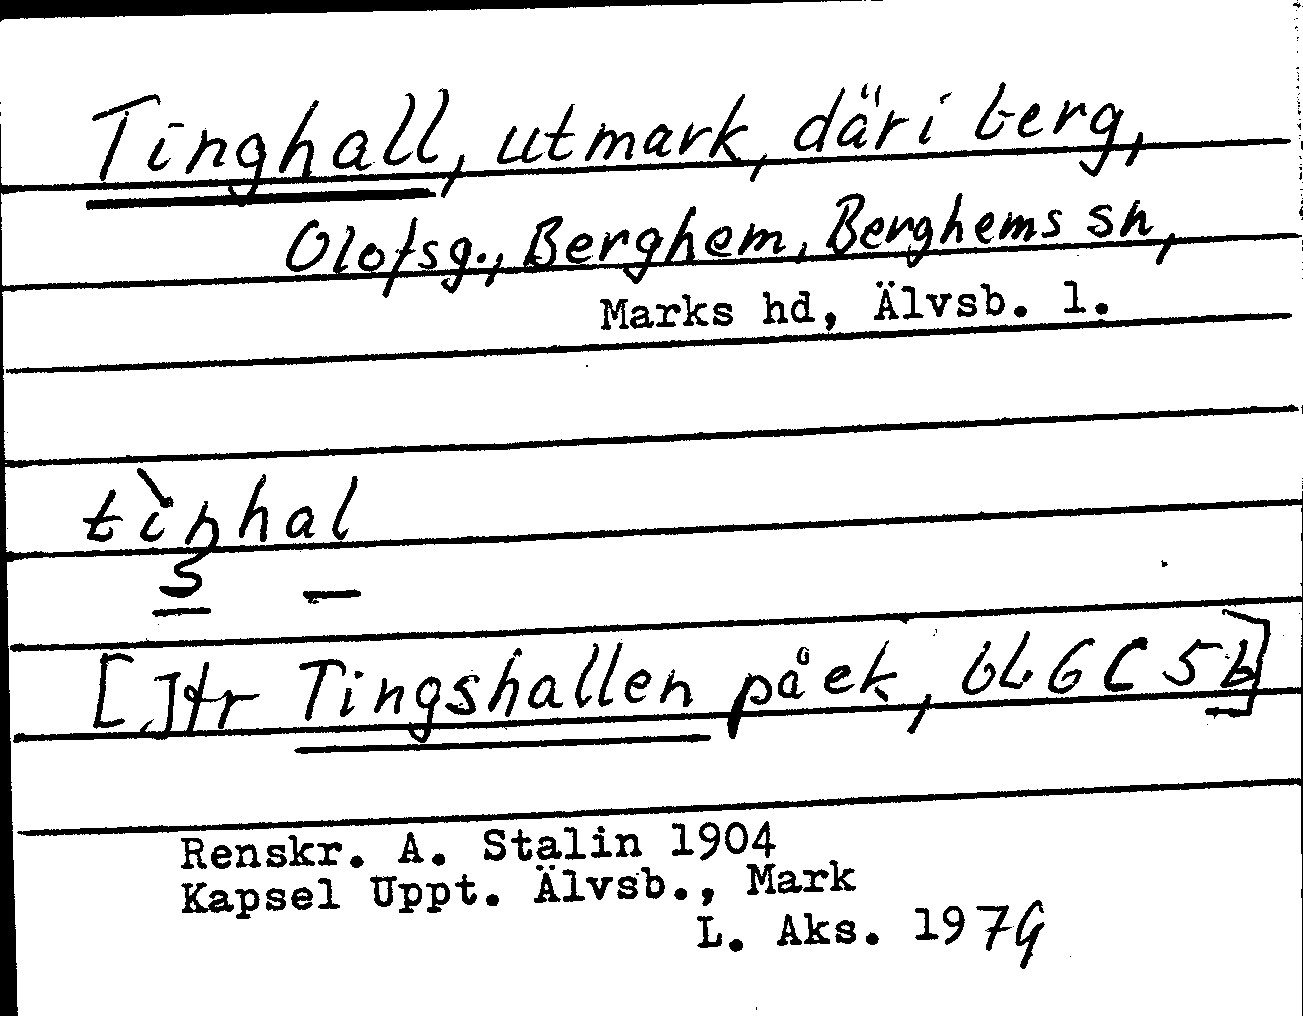 Tinghall, utmark, däri berg,
Olofsg., Berghem, Berghems sn,
Marks hd, Älvsb. l.
tìŋhal
5 –
[Jfr Tingshallen på ek, bl. 6 C 5 b]
Renskr. A. Stalin 1904
Kapsel Uppt. Älvsb., Mark
L. Aks. 1979